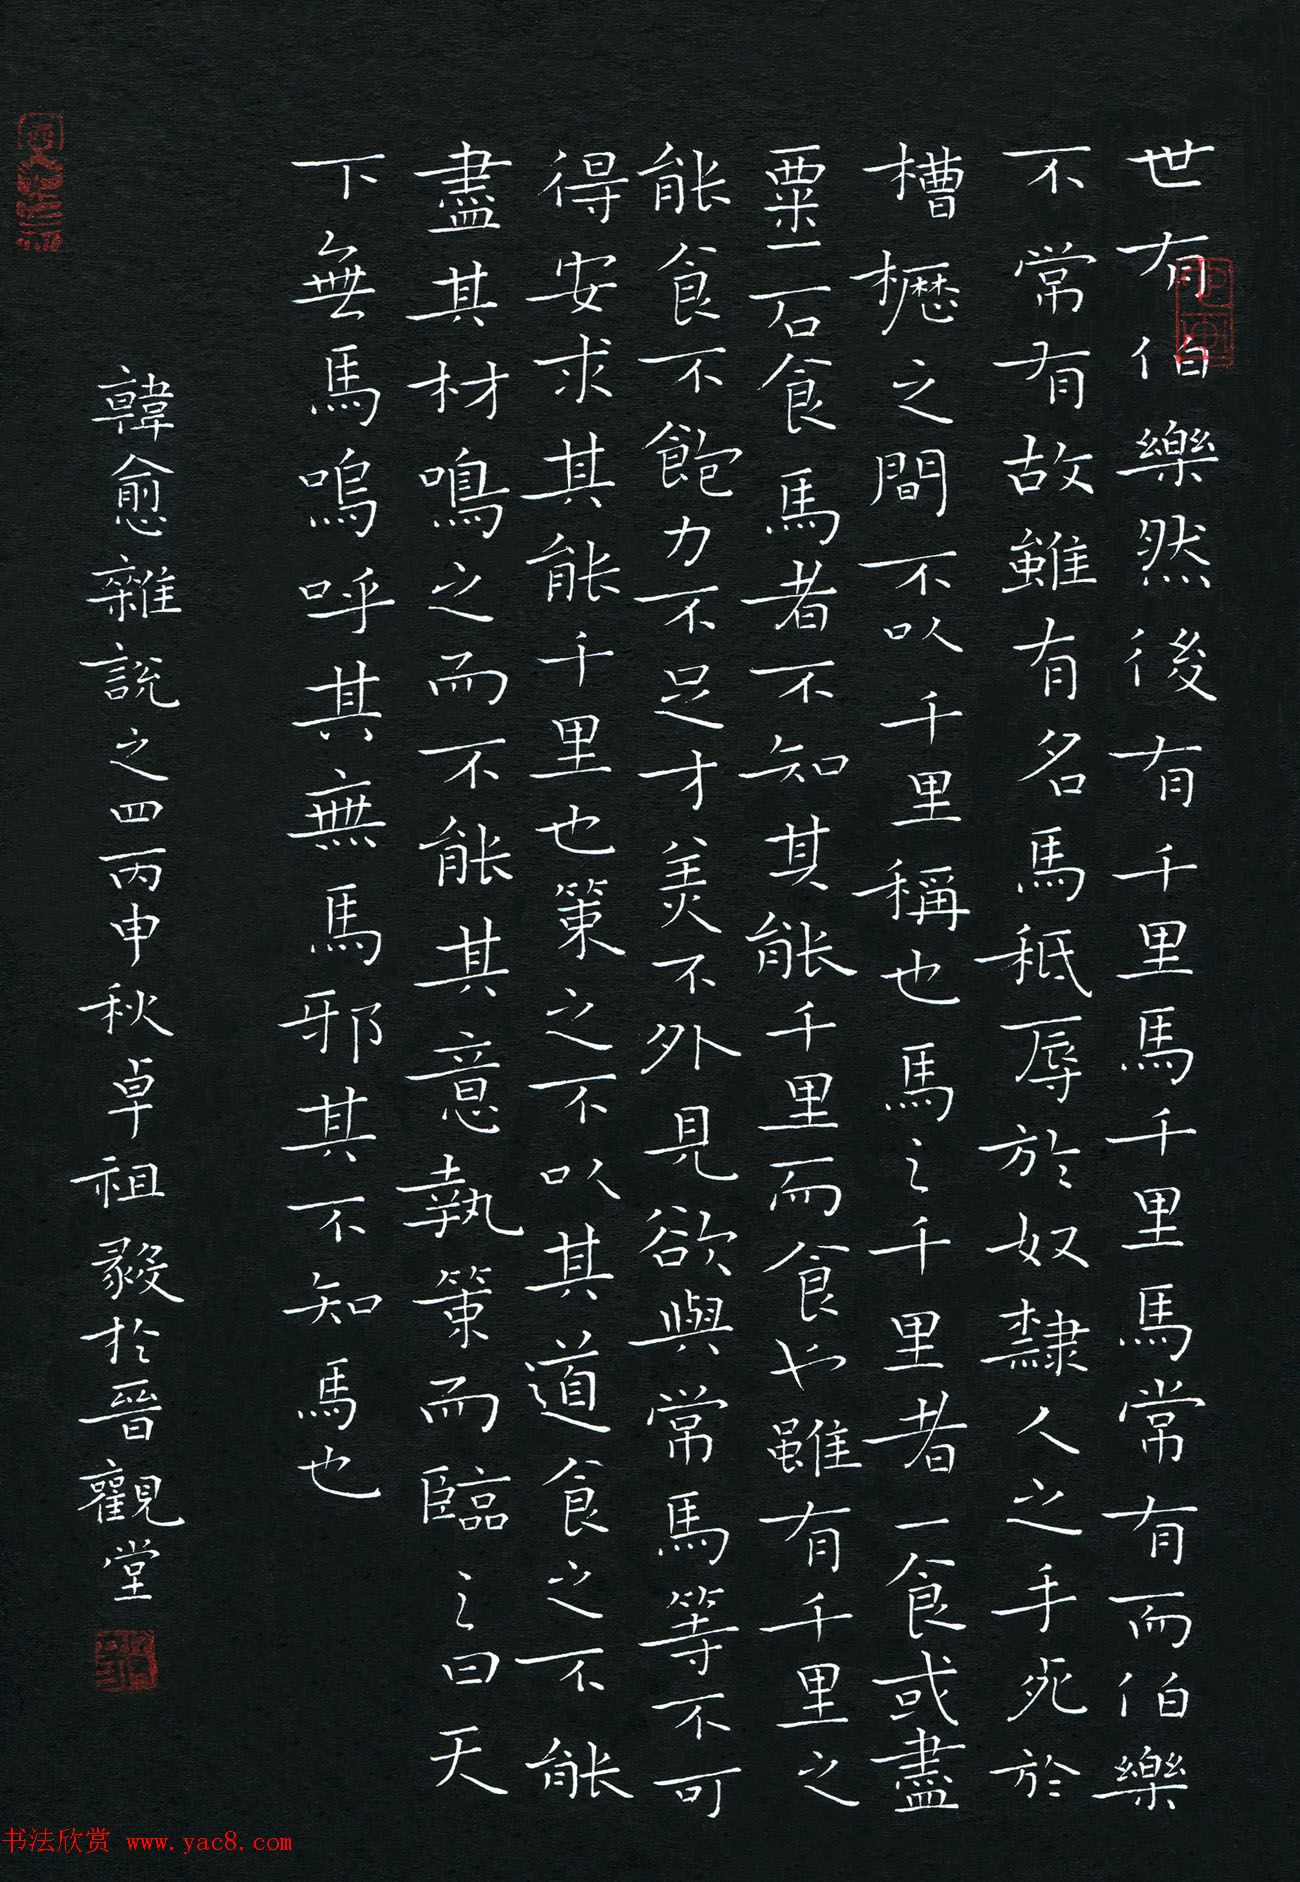 世有伯樂然後有千里馬千里馬常有而伯樂
不常有故雖有名馬秪辱於奴隸人之手死於
槽櫪之間不以千里稱也馬之千里者一食或盡
粟一石食馬者不知其能千里而食也雖有千里之
能食不飽力不足才美不外見欲與常馬等不可
得安求其能千里也策之不以其道食之不能
盡其材鳴之而不能其意執策而臨之曰天
下無馬嗚呼其無馬邪其不知馬也
韓愈雜說之四丙申秋卓祖毅於晉觀堂
书法欣赏 www.yac8.com